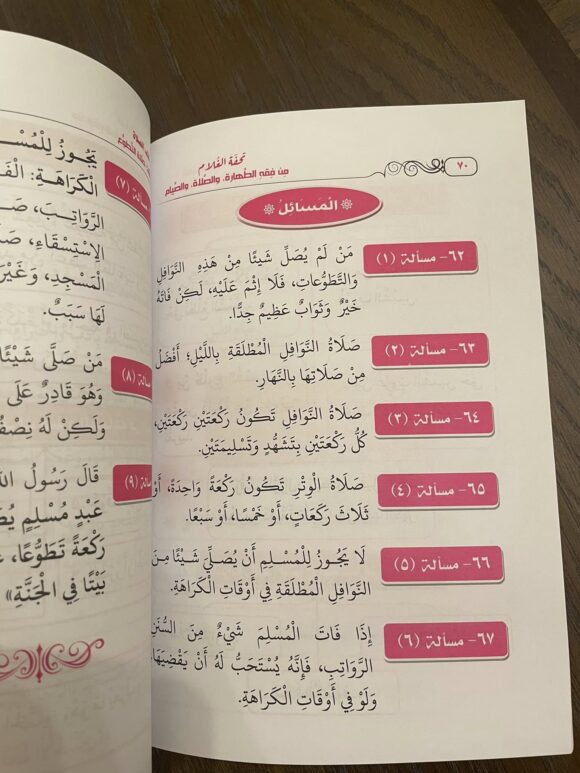 ٧٠
تحفة الغلام
من فقه الطهارة، والصلاة، والصيام
المَسَائِلُ
٦٢- مسألة (١) مَنْ لَمْ يُصَلِّ شَيْئًا مِنْ هَذِهِ النَّوَافِلِ
وَالتَّطَوُّعاتِ، فَلَا إِثْمَ عَلَيْهِ، لَكِنْ فَاتَهُ
خَيْرٌ وَثَوَابٌ عَظِيمٌ جِدًّا.
٦٣- مسألة (٢) صَلَاةُ النَّوَافِلِ الْمُطْلَقَةِ بِاللَّيْلِ؛ أَفْضَلُ
مِنْ صَلَاتِهَا بِالنَّهَارِ.
٦٤- مسألة (٣) صَلَاةُ النَّوَافِلِ تَكُونُ رَكْعَتَيْنِ رَكْعَتَيْنِ،
كُلُّ رَكْعَتَيْنِ بِتَشَهُّدٍ وَتَسْلِيمَتَيْنِ.
٦٥- مسألة (٤) صَلَاةُ الْوِتْرِ تَكُونُ رَكْعَةً وَاحِدَةً، أَوْ
ثَلَاثَ رَكَعَاتٍ، أَوْ خَمْسًا، أَوْ سَبْعًا.
٦٦- مسألة (٥) لَا يَجُوزُ لِلْمُسْلِمِ أَنْ يُصَلِّيَ شَيْئًا مِنَ
النَّوَافِلِ الْمُطْلَقَةِ فِي أَوْقَاتِ الْكَرَاهَةِ.
٦٧- مسألة (٦) إِذَا فَاتَ الْمُسْلِمَ شَيْءٌ مِنَ السُّنَنِ
الرَّوَاتِبِ، فَإِنَّهُ يُسْتَحَبُّ لَهُ أَنْ يَقْضِيَهَا،
وَلَوْ فِي أَوْقَاتِ الْكَرَاهَةِ.
(٧) يَجُوزُ لِلْمُسْ
الْكَرَاهَةِ:
الرَّوَاتِبَ،
الِاسْتِسْقَاءِ،
الْمَسْجِدِ، وَغَيْرَ
لَهَا سَبَبٌ.
(٨) مَنْ صَلَّى شَيْئًا
وَهُوَ قَادِرٌ عَلَى
وَلَكِنْ لَهُ نِصْفُ
(٩) قَالَ رَسُولُ
عَبْدٍ مُسْلِمٍ
رَكْعَةً تَطَوُّعًا،
بَيْتًا فِي الْجَنَّةِ»